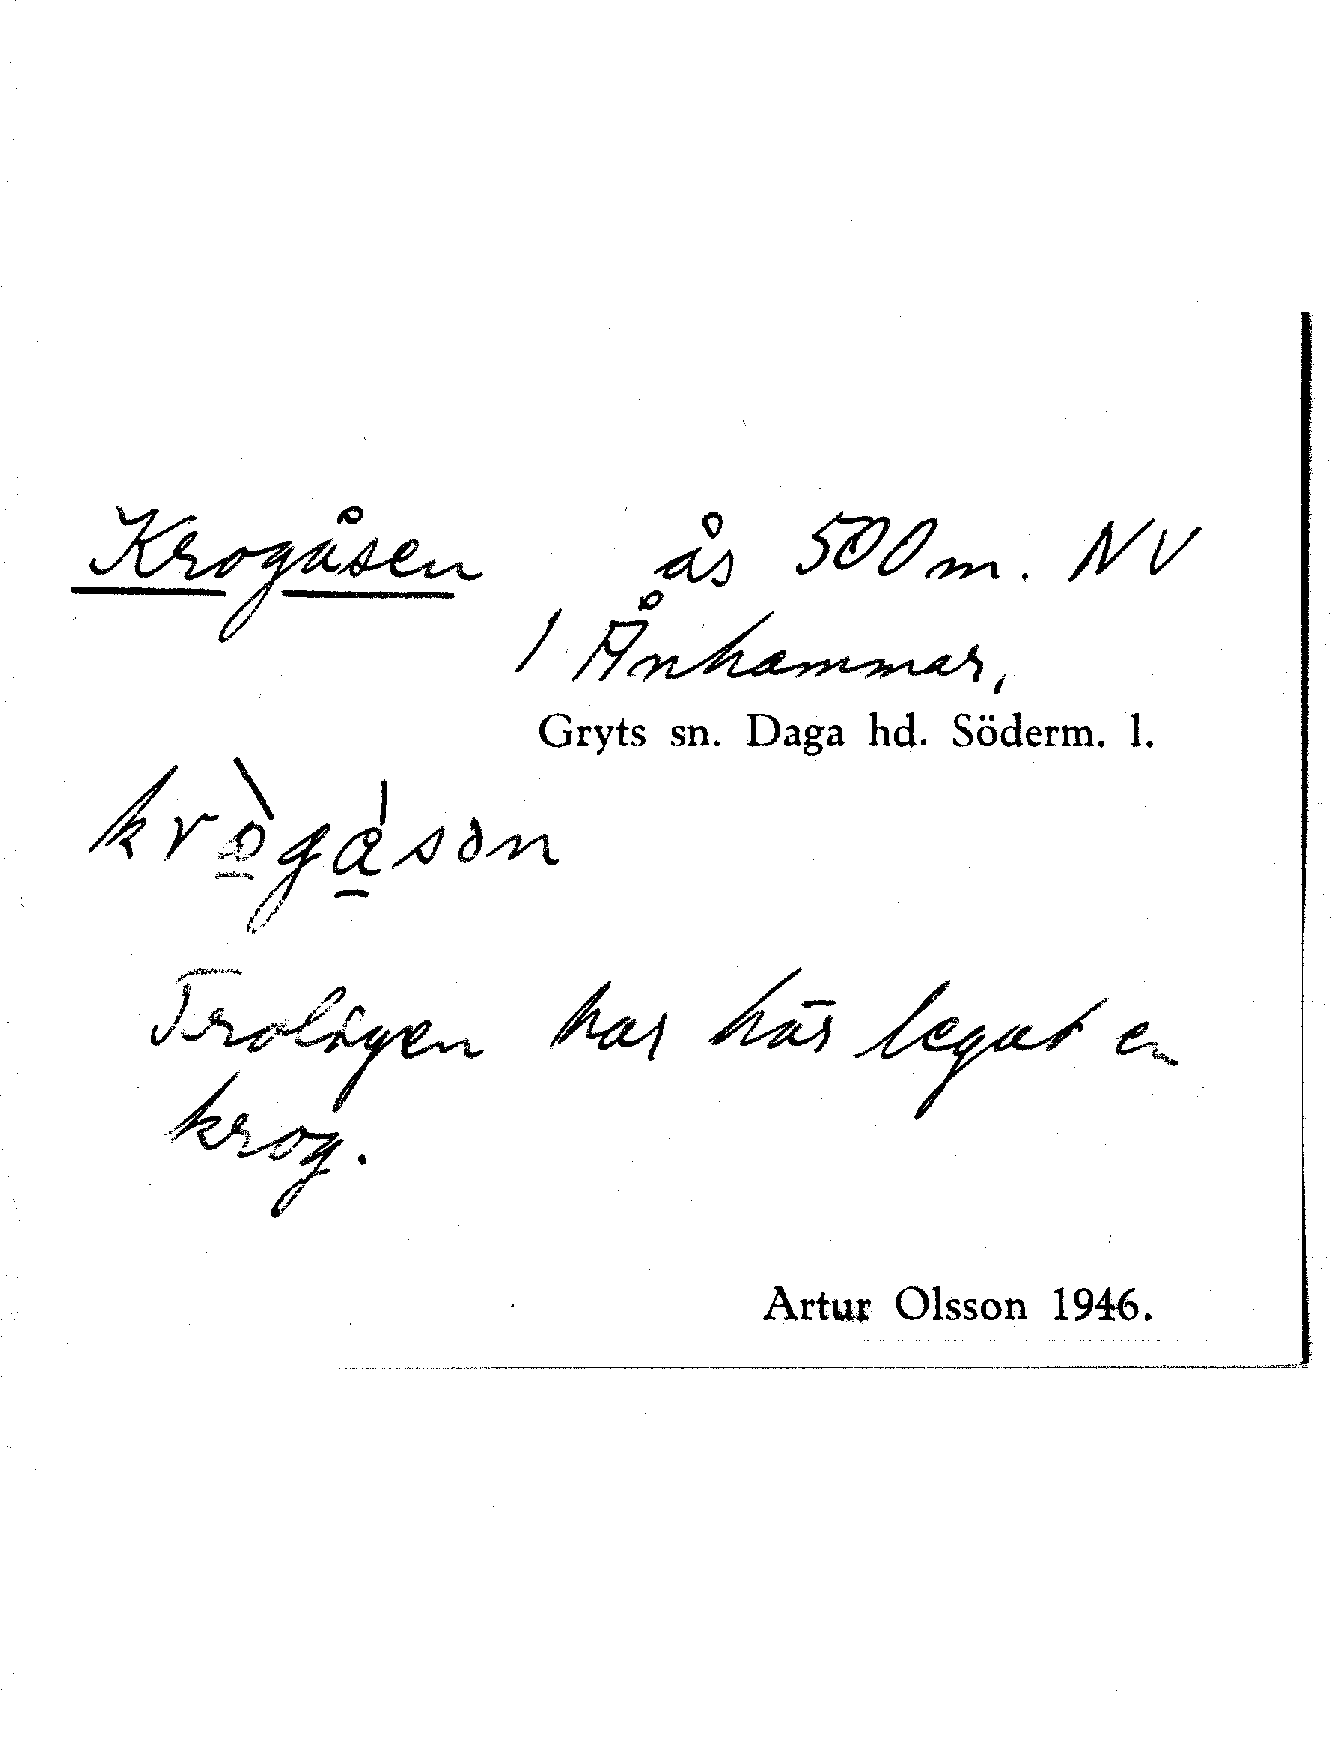 Krogåsen ås 500 m. NV
1 Ånhammar,
Gryts sn. Daga hd. Söderm. l.
Troligen har här legat en
krog.
Artur Olsson 1946.